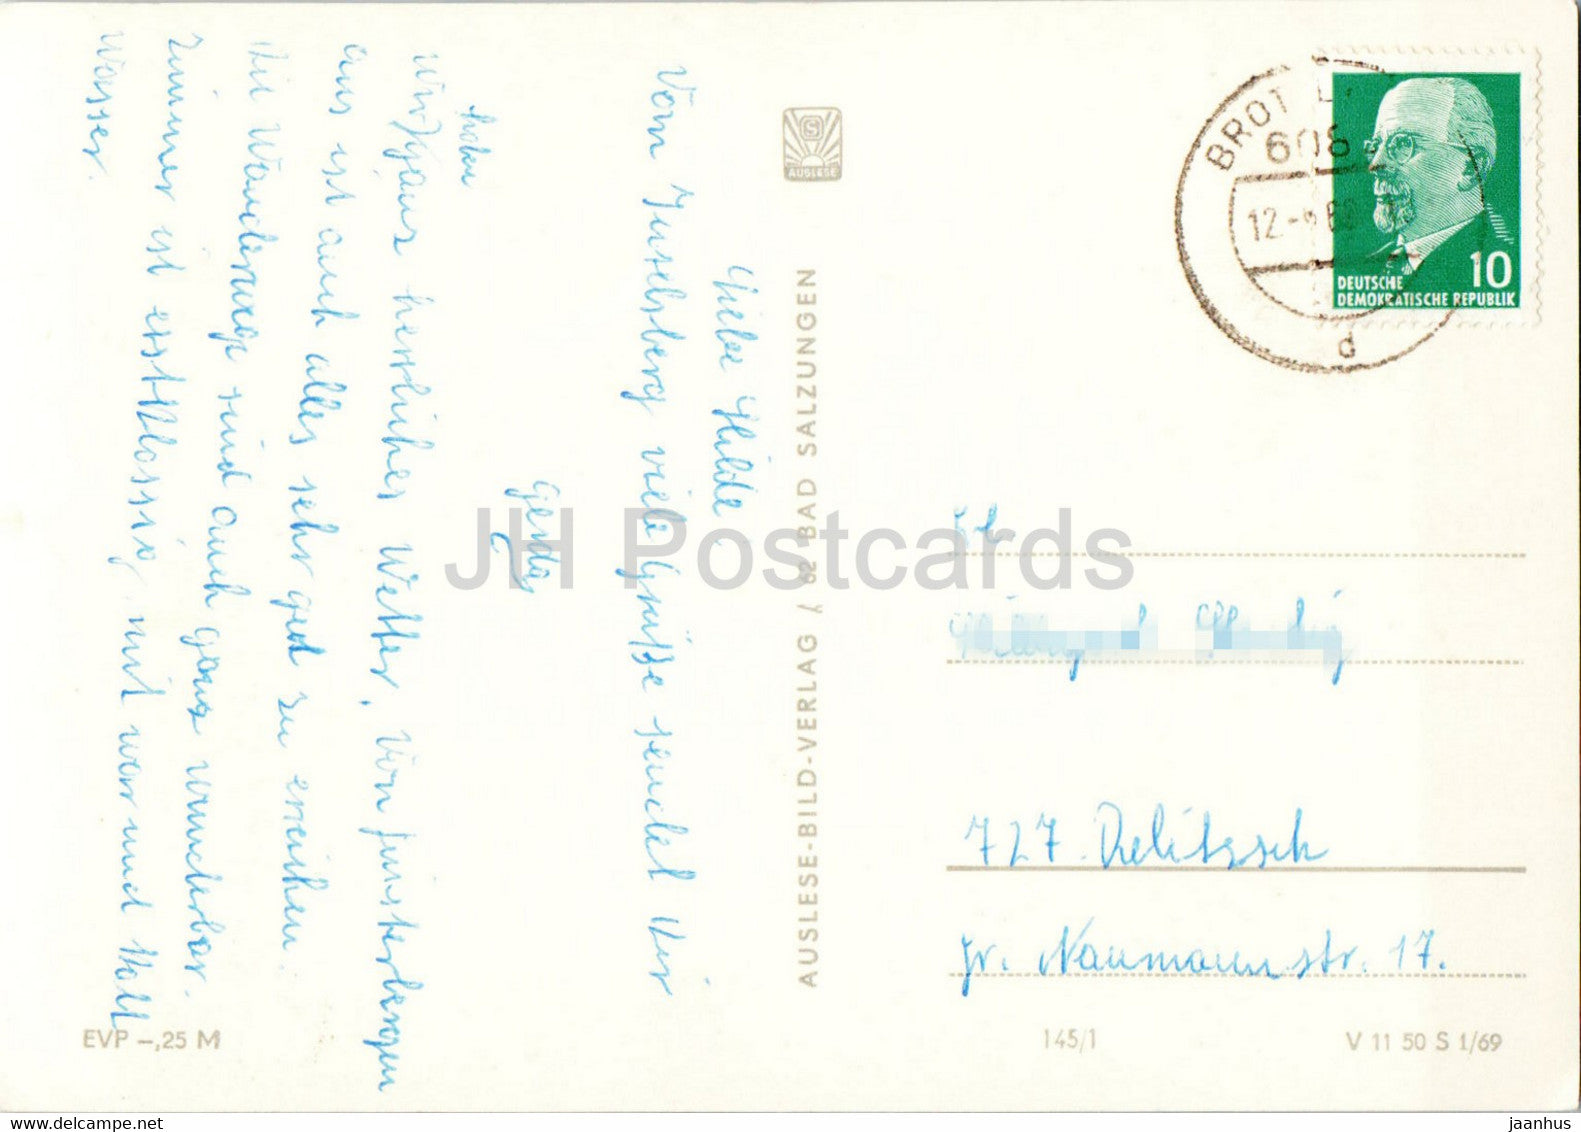 Liebe Hilde.
Vom Inselsberg viele Grüße sendet Dir
Gerda
haben
Wir ganz herrliches Wetter, von Finsterbergen
aus ist auch alles sehr gut zu erreichen.
Die Wanderwege sind auch ganz wunderbar.
Zimmer ist erstklassig mit warm und kalt
Wasser.
AUSLESE
AUSLESE-BILD-VERLAG / 62 BAD SALZUNGEN
BROT
608
12.-
d
10
DEUTSCHE
DEMOKRATISCHE REPUBLIK
727 Delitzsch
Fr. Naumannstr. 17.
EVP -,25 M
145/1
V 11 50 S 1/69
JH Postcards
www.delcampe.net
jaanhus